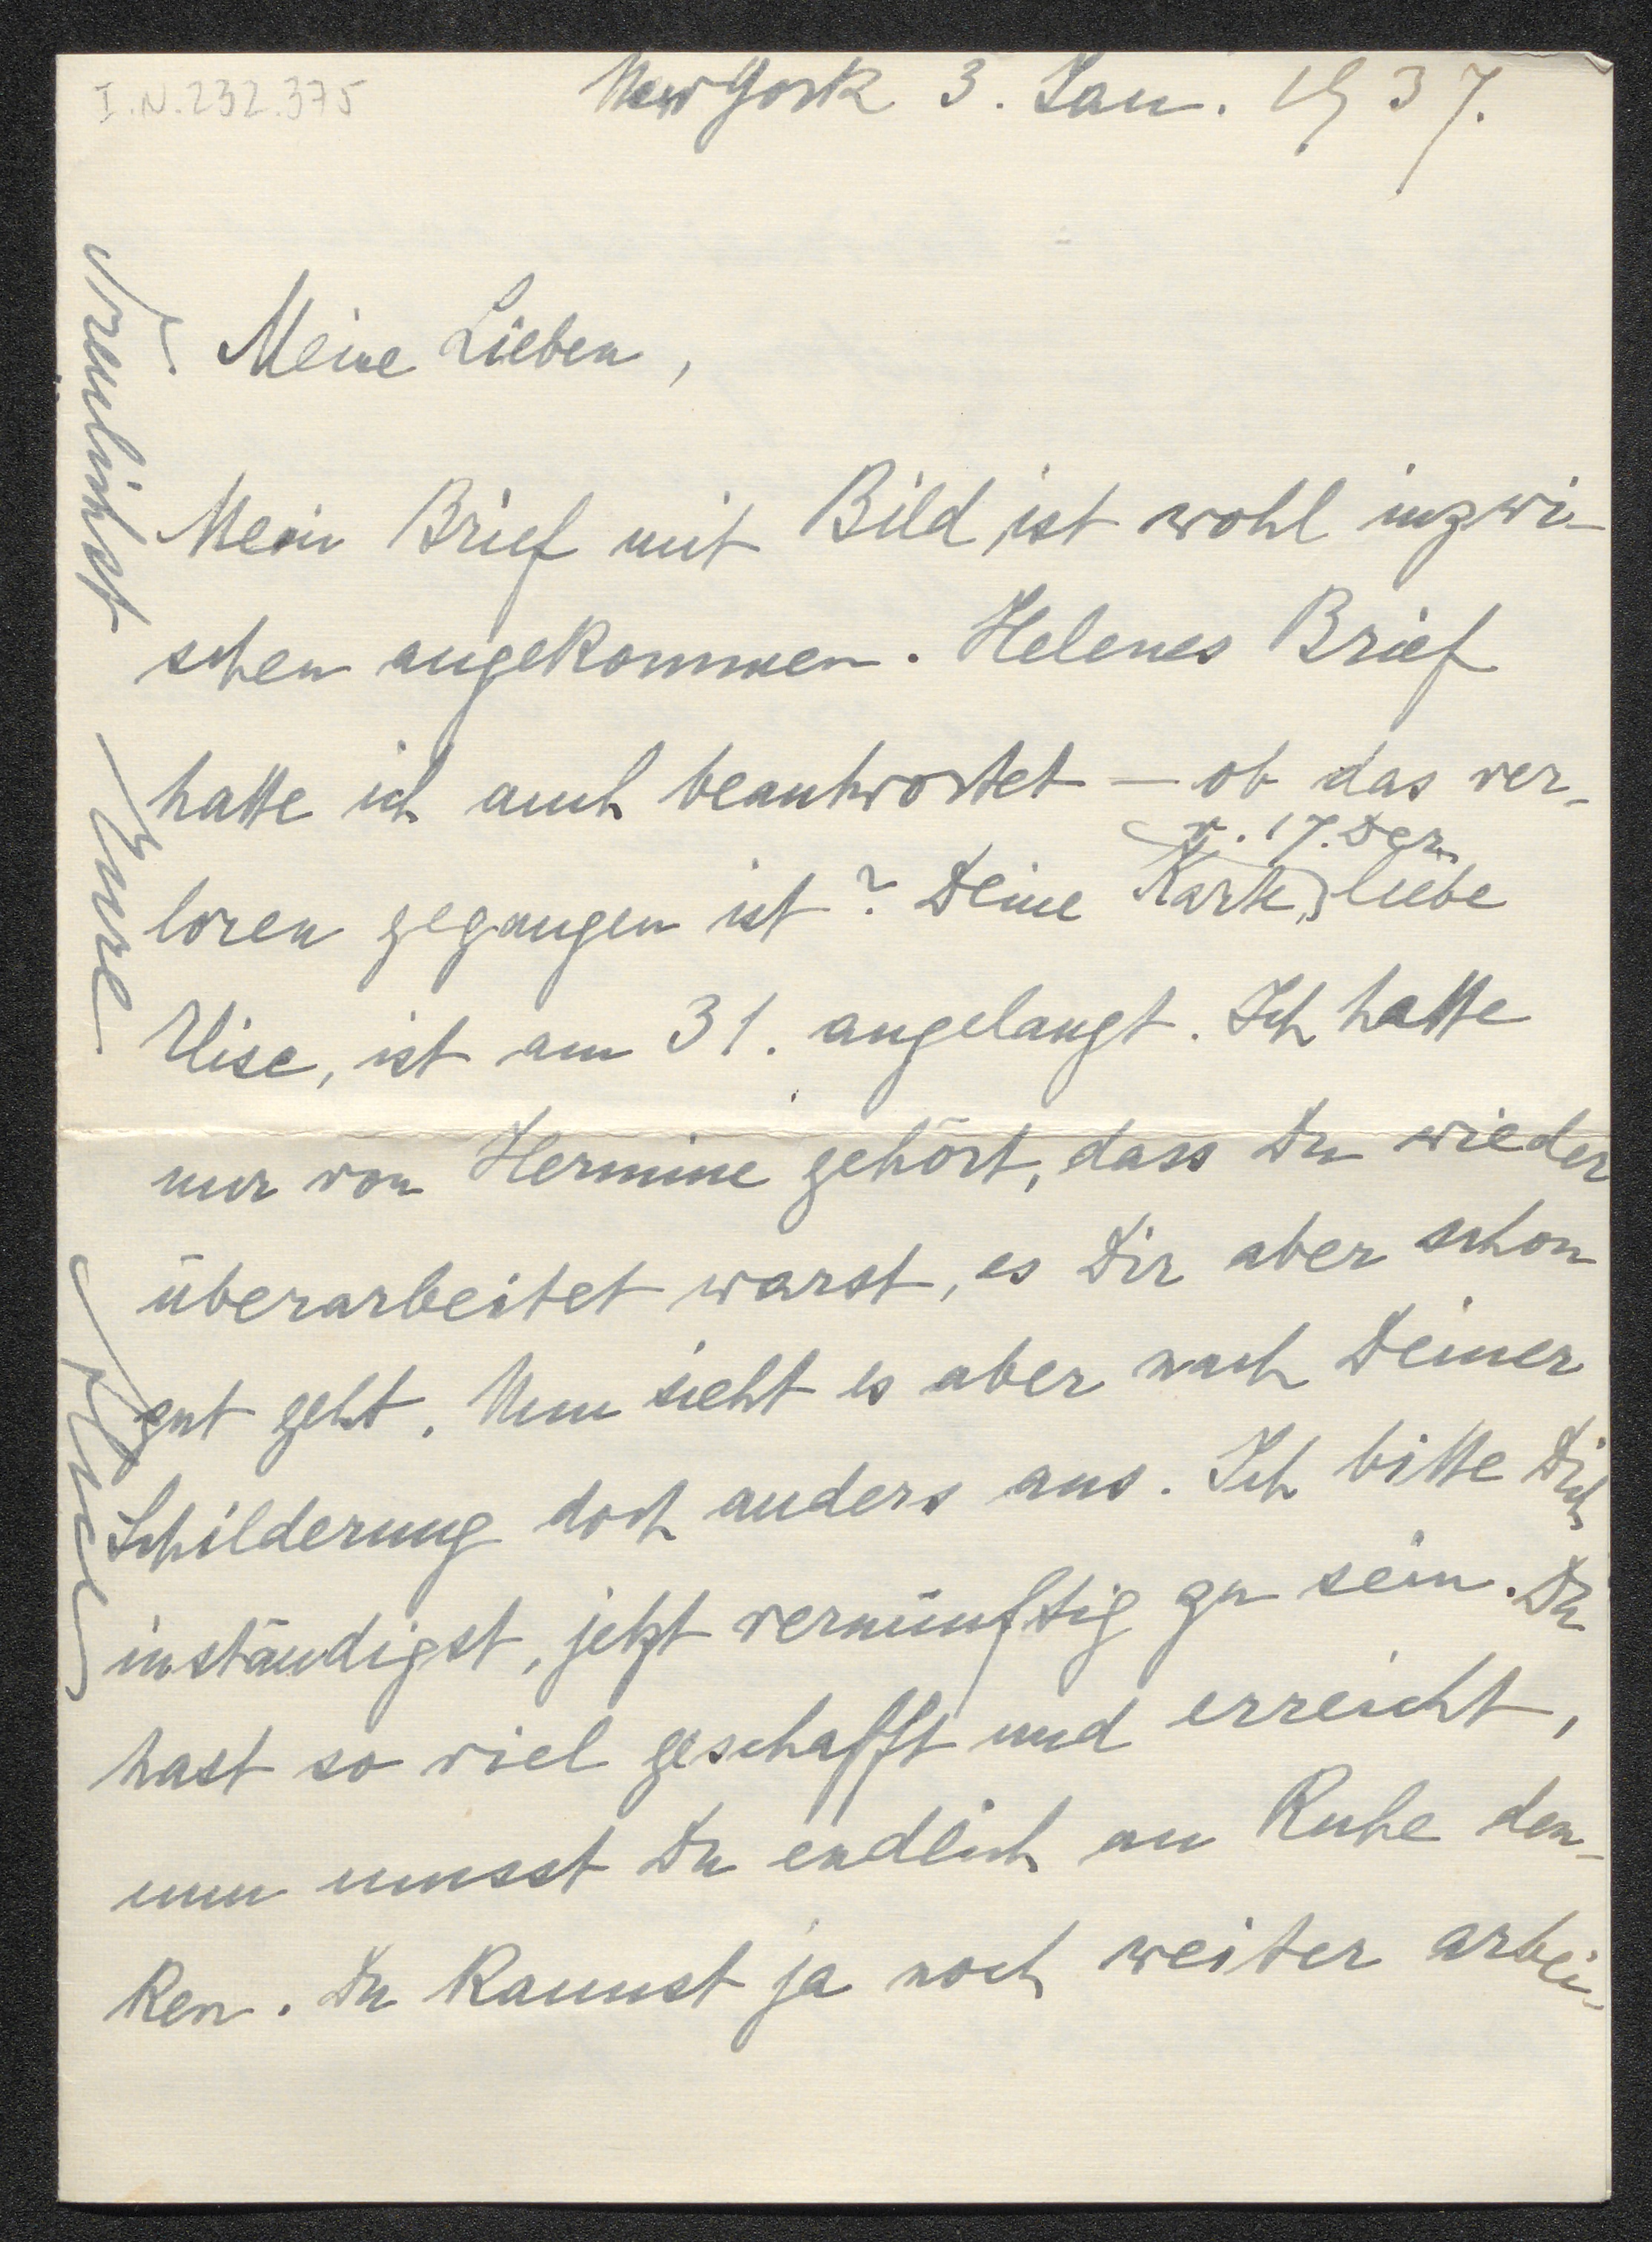 I.N.232.375
New York 3. Jan. 1937.
Meine Lieben,
Mein Brief mit Bild ist wohl inzwi-
schen angekommen. Helenes Brief
hatte ich auch beantwortet – ob das ver-
loren gegangen ist? Deine Karte, liebe
v. 17. Dez.
Ilise, ist am 31. angelangt. Ich hatte
nur von Hermine gehört, dass Du wieder
überarbeitet warst, es Dir aber schon
gut geht. Nun sieht es aber nach Deiner
Schilderung doch anders aus. Ich bitte Dich
inständigst, jetzt vernünftig zu sein. Du
hast so viel geschafft und erreicht,
nun musst Du endlich an Ruhe den-
ken. Du kannst ja noch weiter arbei-
Eure